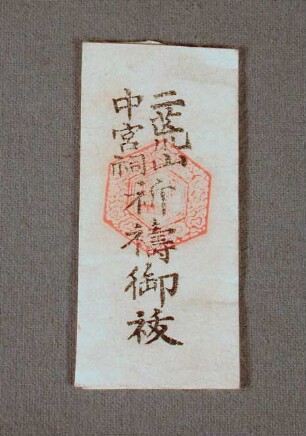 二荒山
中宮祠
祈禱御祓